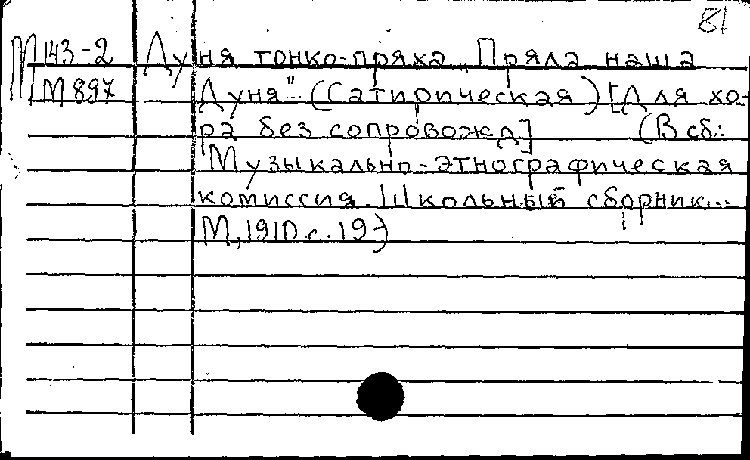 81
М 143-2 Дуня тонко-пряха „Пряла наша
М 897 Дуня". (Сатирическая) [Для хо-
ра без сопровожд] (В сб.:
Музыкально-этнографическая
комиссия. Школьный сборник...
М., 1910. с. 19)